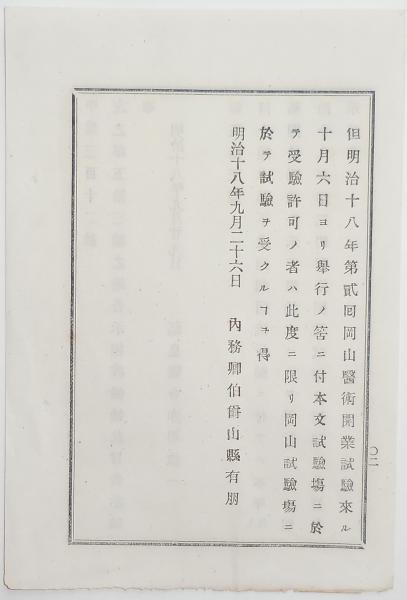 但明治十八年第貳囘岡山醫術開業試驗來ル
十月六日ヨリ擧行ノ筈ニ付本文試驗塲ニ於
テ受驗許可ノ者ハ此度ニ限リ岡山試驗塲ニ
於テ試驗ヲ受クルヿヲ得
明治十八年九月二十六日　內務卿伯爵山縣有朋
〇二